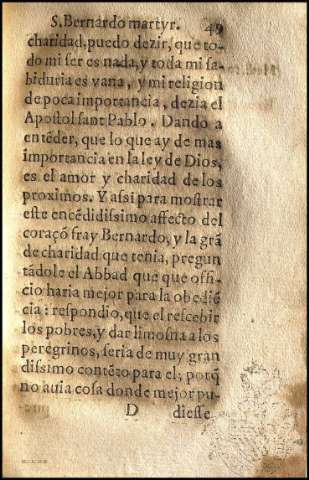 S. Bernardo martyr. 49
charidad, puedo dezir, que to-
do mi ser es nada, y toda mi sa-
biduria es vana, y mi religion
de poca importancia, dezia el
Apostol sant Pablo. Dando a
entẽder, que lo que ay de mas
importancia en la ley de Dios,
es el amor y charidad de los
proximos. Y assi para mostrar
este encẽdidissimo affecto del
coraçõ fray Bernardo, y la grã
de charidad que tenia, pregun
tãdole el Abbad que que offi-
cio haria mejor para la obediẽ
cia: respondio, que el rescebir
los pobres, y dar limosna a los
peregrinos, seria de muy gran
dissimo contẽto para el, porq̃
no auia cosa donde mejor pu-
D dieste